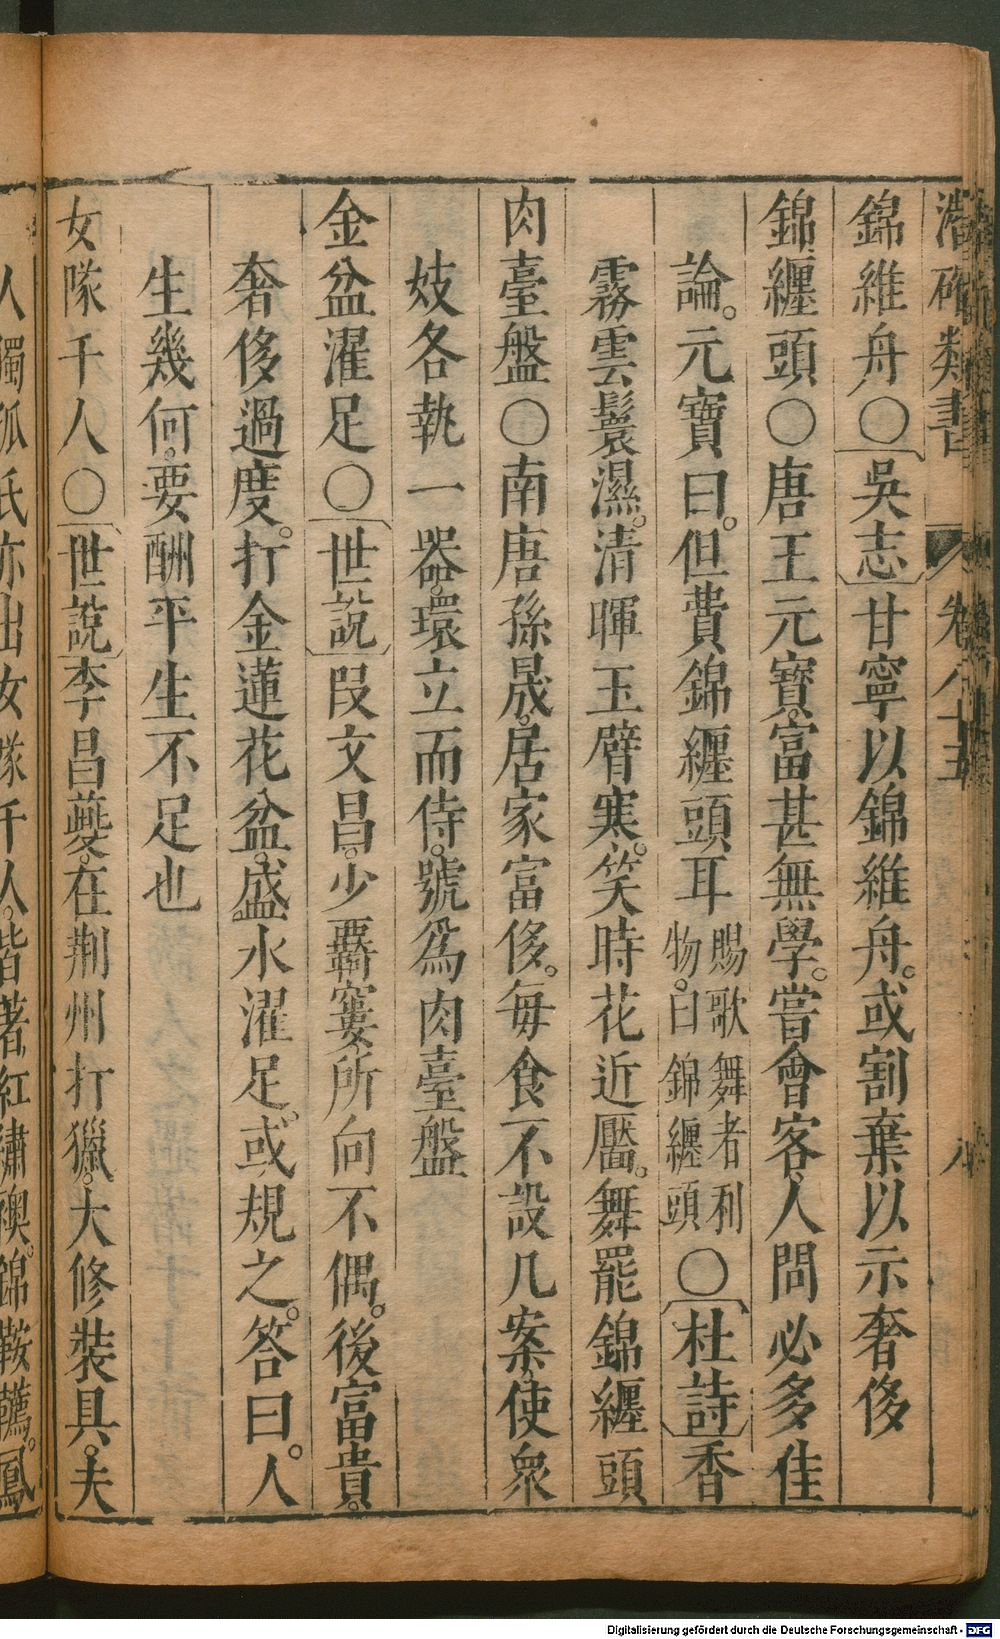 潛確類書 卷八十五 八
錦維舟○吳志甘寧以錦維舟。或割棄以示奢侈
錦纏頭○唐王元寶。富甚無學。嘗會客。人問必多佳
論。元寶曰。但費錦纏頭耳賜歌舞者利物。曰錦纏頭○杜詩香
霧雲鬟濕。清暉玉臂寒。笑時花近靨。舞罷錦纏頭
肉臺盤○南唐孫晟。居家富侈。每食不設几案。使衆
妓各執一器。環立而侍。號爲肉臺盤
金盆濯足○世說段文昌。少覊窶。所向不偶。後富貴。
奢侈過度。打金蓮花盆。盛水濯足。或規之。答曰。人
生幾何。要酬平生不足也
女隊千人○世說李昌夔。在荆州打獵。大修裝具。夫
人獨孤氏亦出女隊千人。皆著紅繡襖。錦鞍韉。鳳
Digitalisierung gefördert durch die Deutsche Forschungsgemeinschaft - DFG